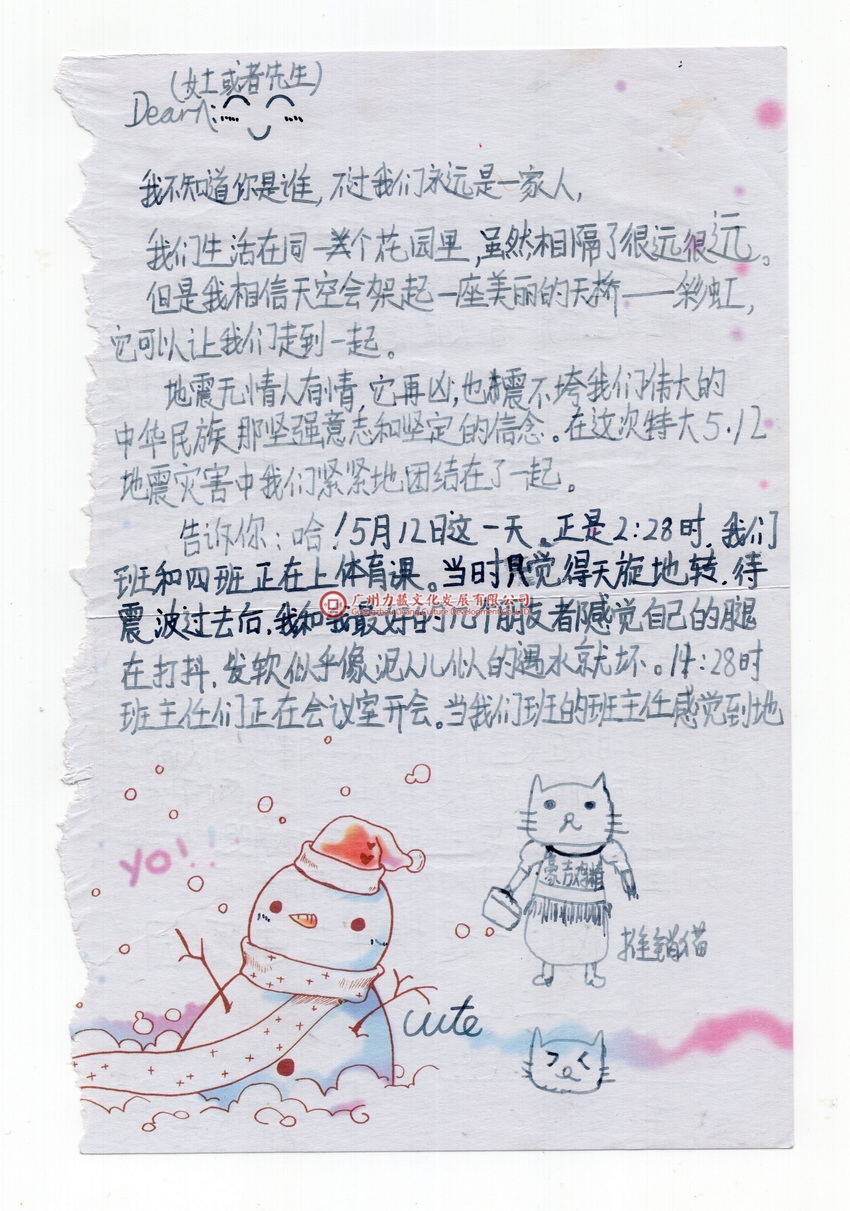 (女士或者先生)
Dear:
我不知道你是谁,不过我们永远是一家人,
我们生活在同一个花园里,虽然相隔了很远很远。
但是我相信天空会架起一座美丽的天桥——彩虹,
它可以让我们走到一起。
地震无情人有情,它再凶,也震不垮我们伟大的
中华民族那坚强意志和坚定的信念。在这次特大5.12
地震灾害中我们紧紧地团结在了一起。
告诉你:哈!5月12日这一天,正是2:28时,我们
班和四班正在上体育课。当时只觉得天旋地转,待
震波过去后,我和我最好的几个朋友者隋感觉自己的腿
在打抖,发软似乎像泥人儿似的遇水就坏。14:28时
班主任们正在会议室开会。当我们班的班主任感觉到地
广州力蓝文化发展有限公司
yo!!
豪吉鸡精
推销猫
cute